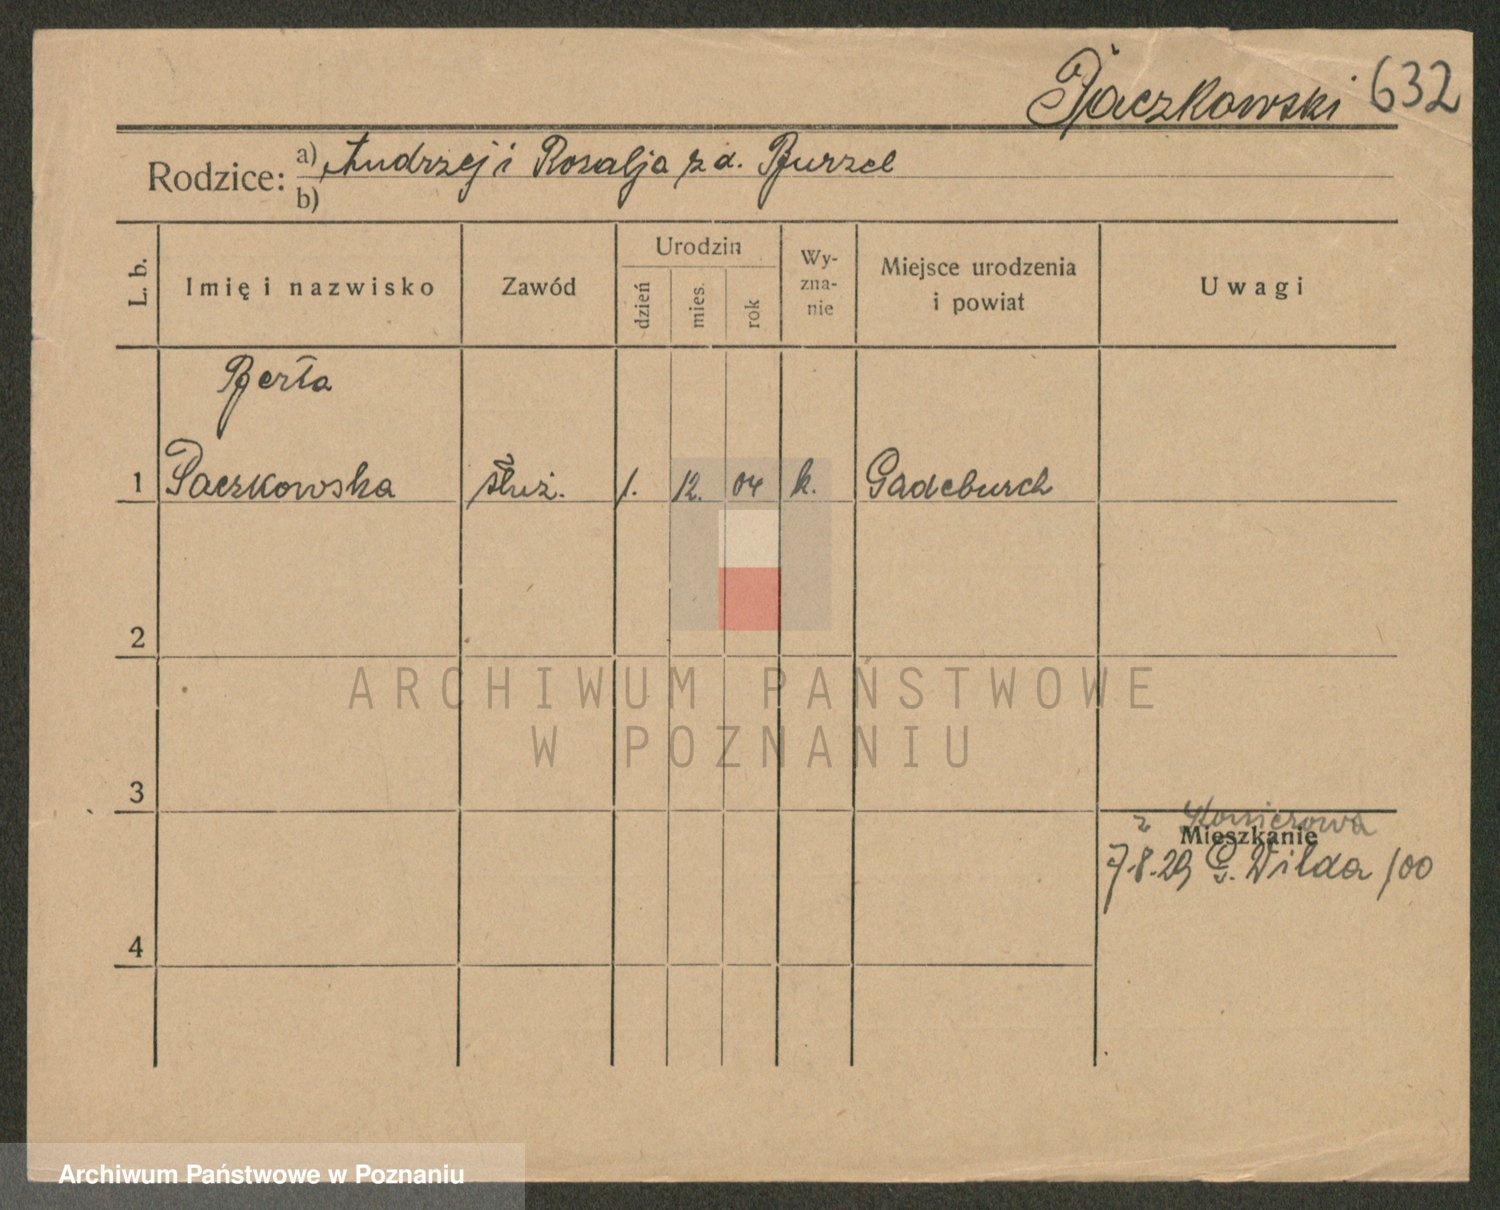 Paczkowski 632
Rodzice: a) Andrzej i Rozalja z d. Burzel
b)
L. b. Imię i nazwisko Zawód Urodzin dzień mies. rok Wy-zna-nie Miejsce urodzenia i powiat Uwagi
Berta
1 Paczkowska służ. 1. 12. 04 k. Gadebusch
2
ARCHIWUM PAŃSTWOWE
W POZNANIU
3
z
Mieszkanie
7.8.29 G. Wilda 100
4
Archiwum Państwowe w Poznaniu